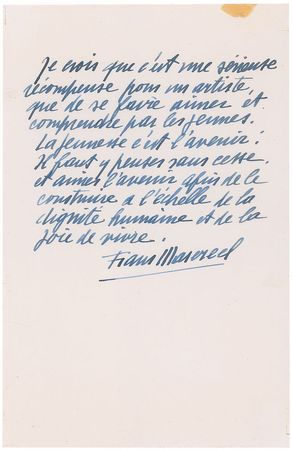 Je crois que c'est une sérieuse
récompense pour un artiste,
que de se faire aimer et
comprendre par les jeunes.
La jeunesse c'est l'avenir !
Il faut y penser sans cesse.
et aimer l'avenir afin de le
construire à l'échelle de la
dignité humaine et de la
joie de vivre.
Frans Masereel